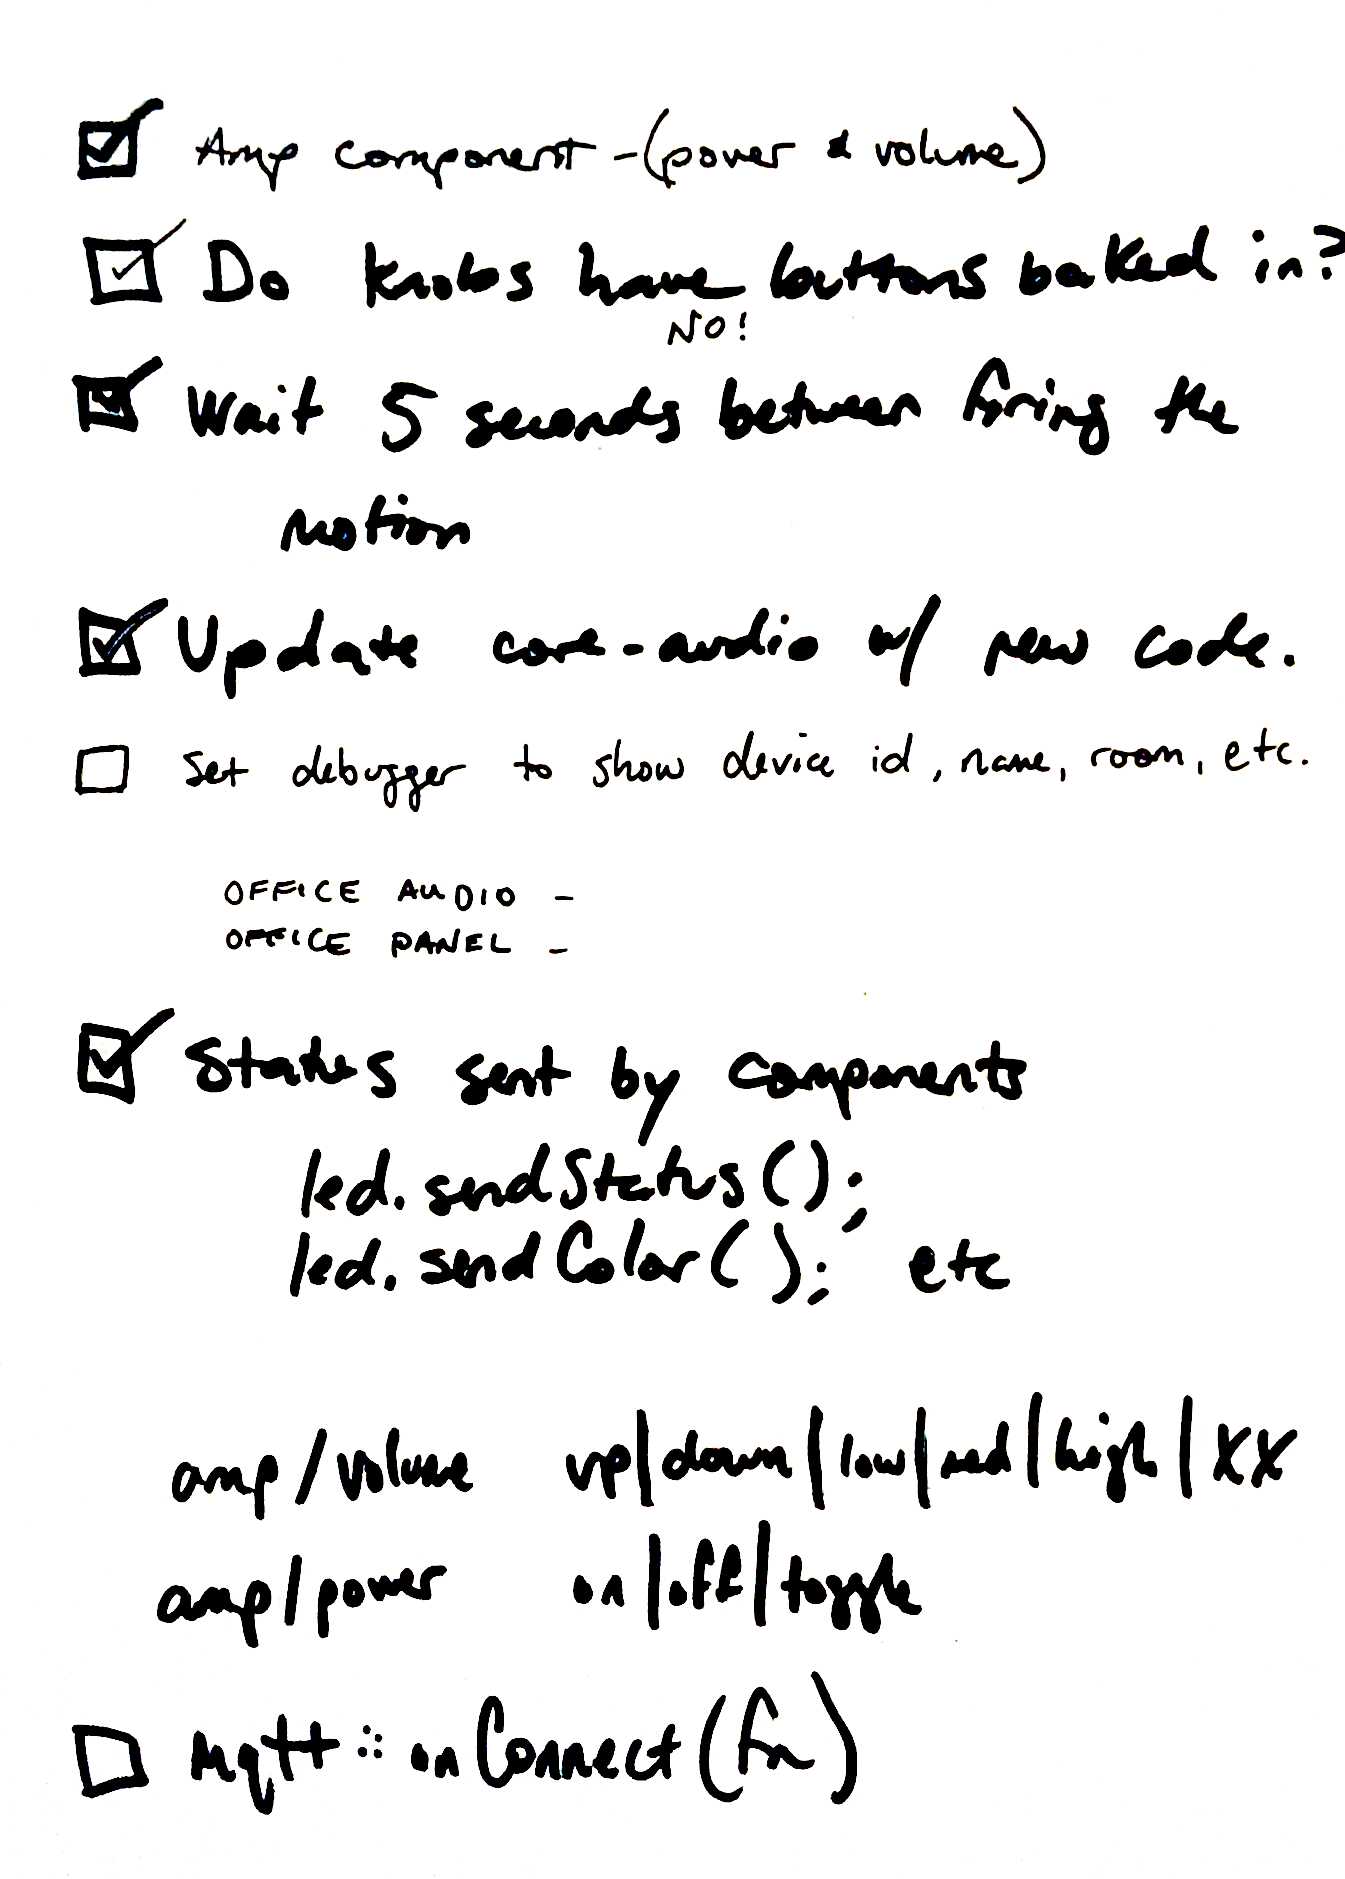 Amp component - (power & volume)
Do knobs have buttons baked in?
NO!
Wait 5 seconds between firing the
motion
Update core-audio w/ new code.
Set debugger to show device id, name, room, etc.
OFFICE AUDIO -
OFFICE PANEL -
Status sent by components
led.sendStatus();
led.sendColor(); etc
amp/volume up|down|low|med|high|XX
amp/power on|off|toggle
Mqtt::onConnect(fn)